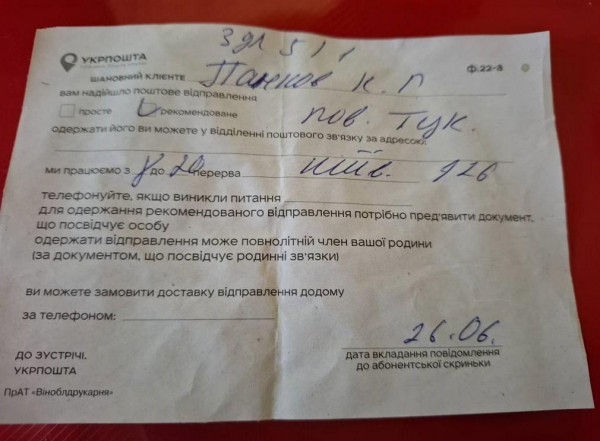 Здл 511
УКРПОШТА
Ф.22-в
ШАНОВНИЙ КЛІЄНТЕ Панков К. Г
вам надійшло поштове відправлення
просте рекомендоване пов. Тцк.
одержати його ви можете у відділенні поштового зв'язку за адресою:
ми працюємо з 8 до 20 перерва Київ. 126
телефонуйте, якщо виникли питання
для одержання рекомендованого відправлення потрібно пред'явити документ,
що посвідчує особу
одержати відправлення може повнолітній член вашої родини
(за документом, що посвідчує родинні зв'язки)
ви можете замовити доставку відправлення додому
за телефоном:
26.06.
дата вкладання повідомлення
до абонентської скриньки
ДО ЗУСТРІЧІ.
УКРПОШТА
ПрАТ «Віноблдрукарня»